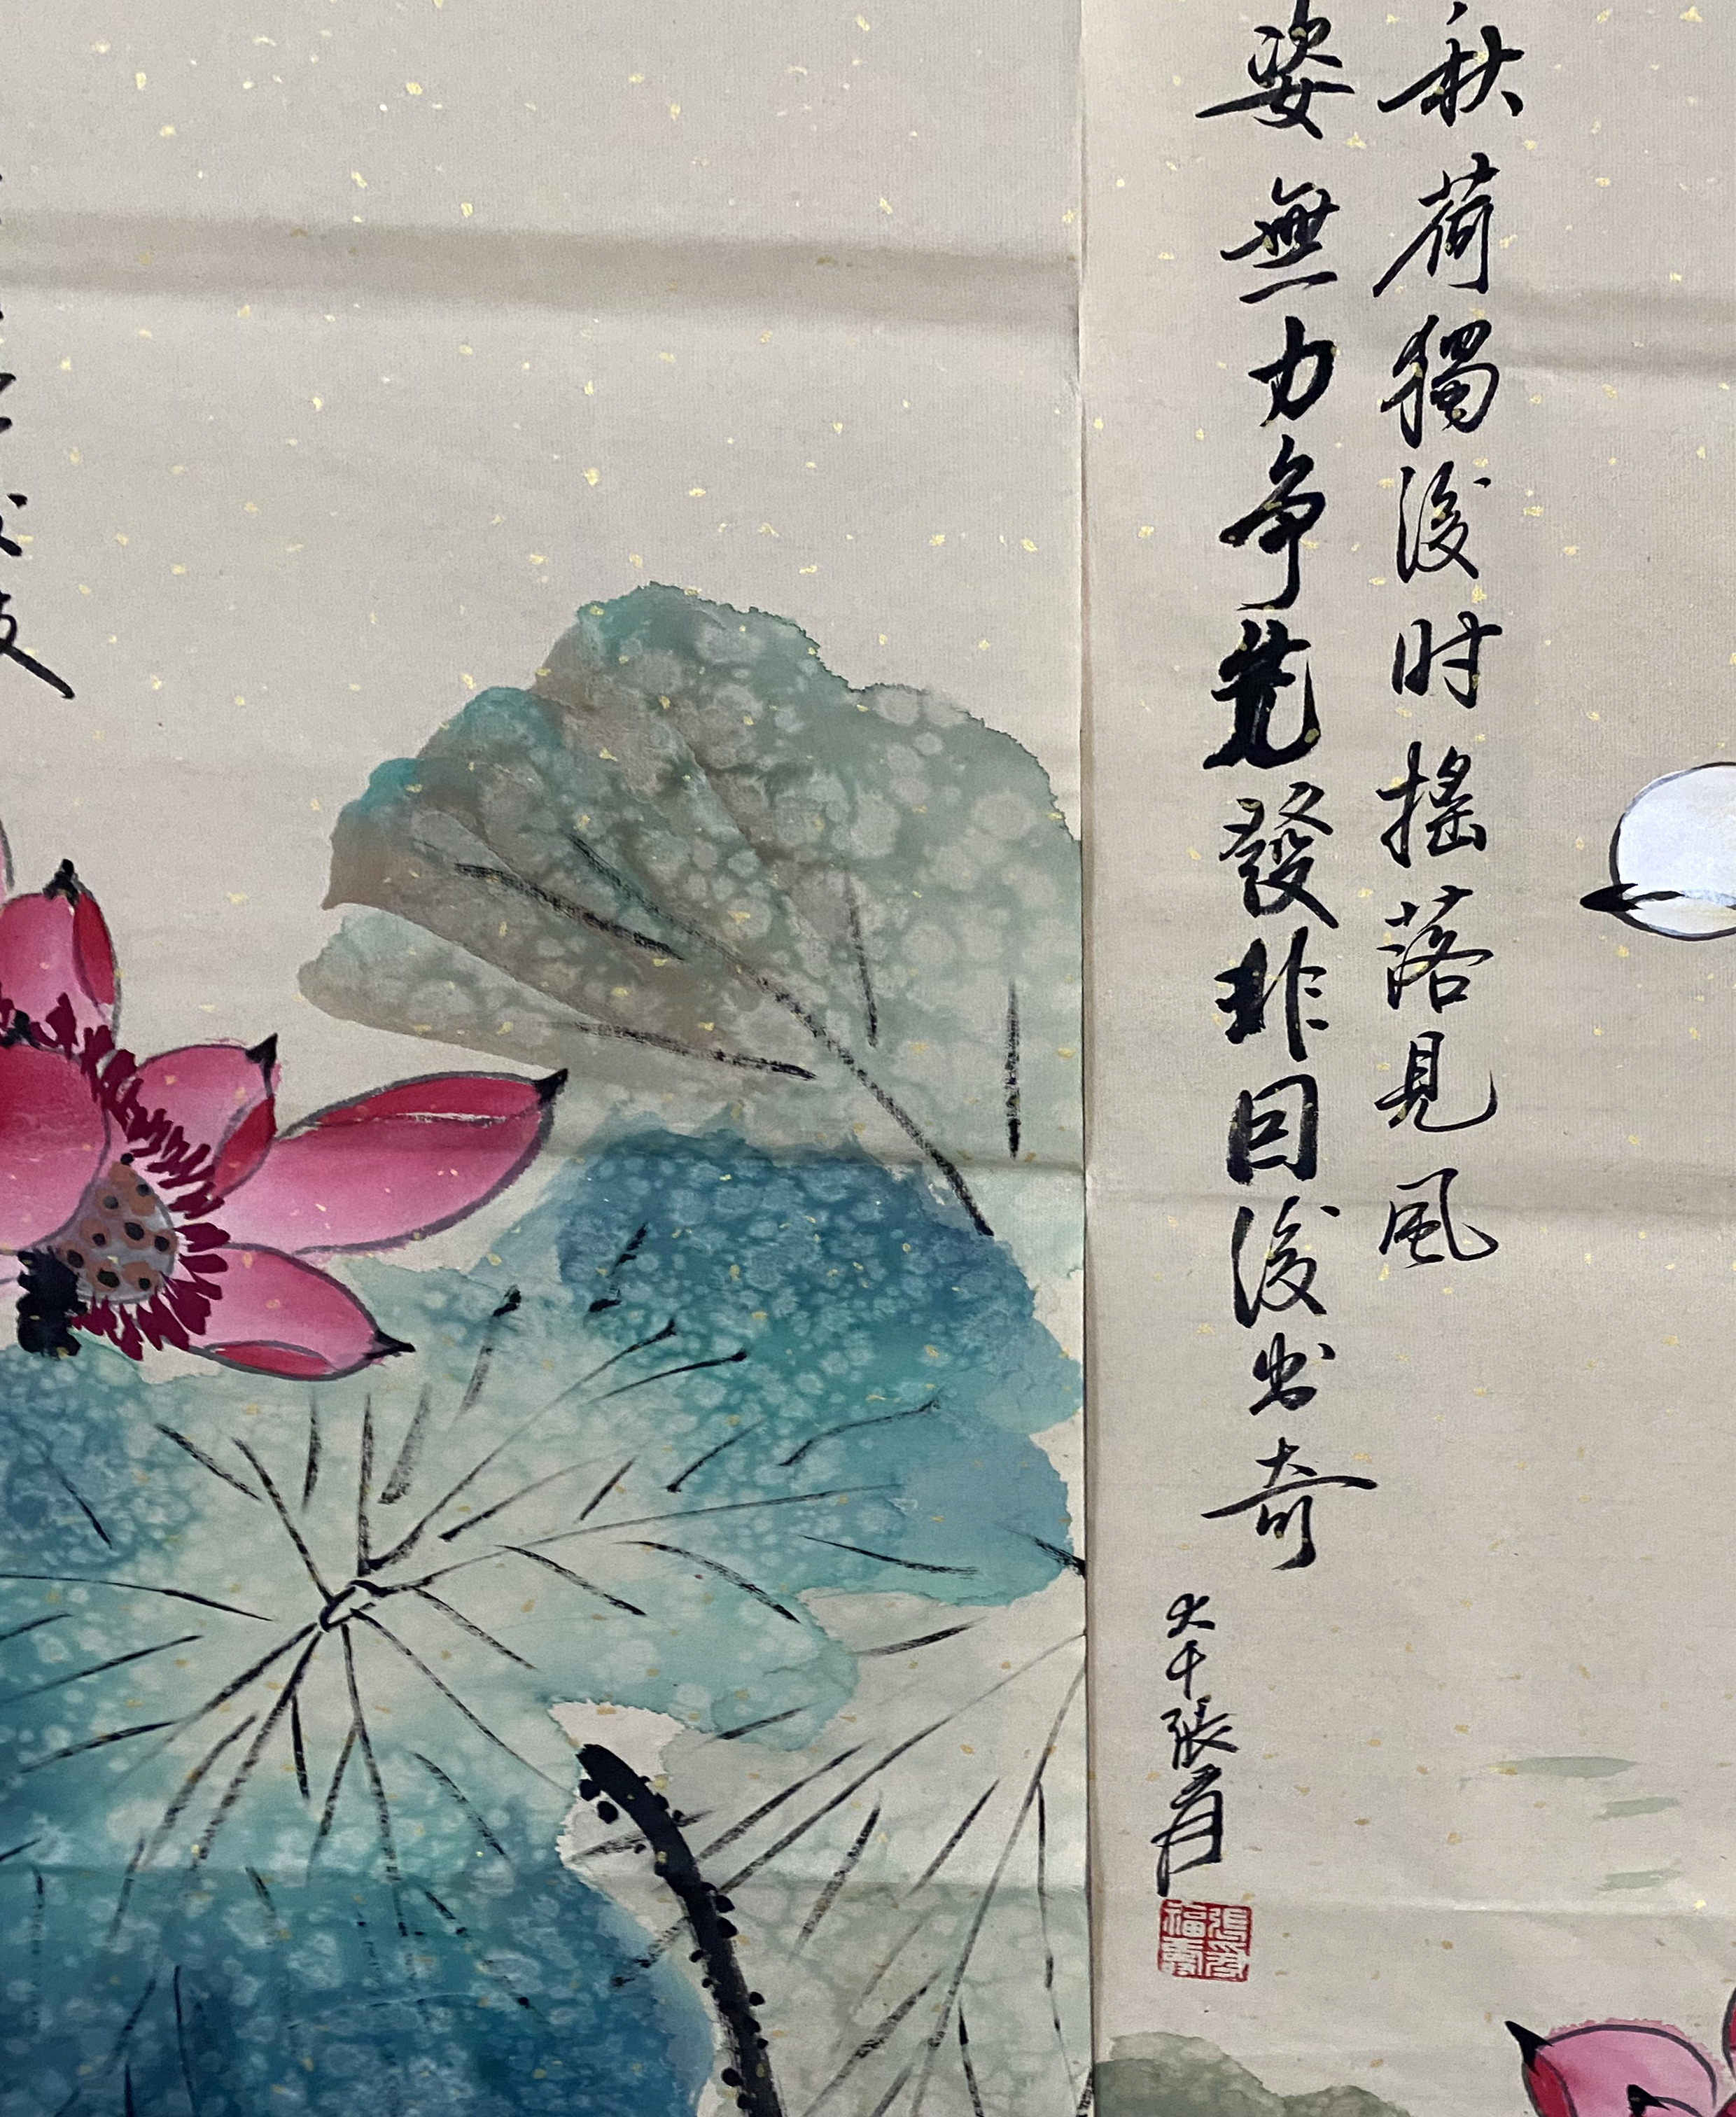 秋荷獨後时摇落見風
姿無力争先發非因後出奇
大千張爰